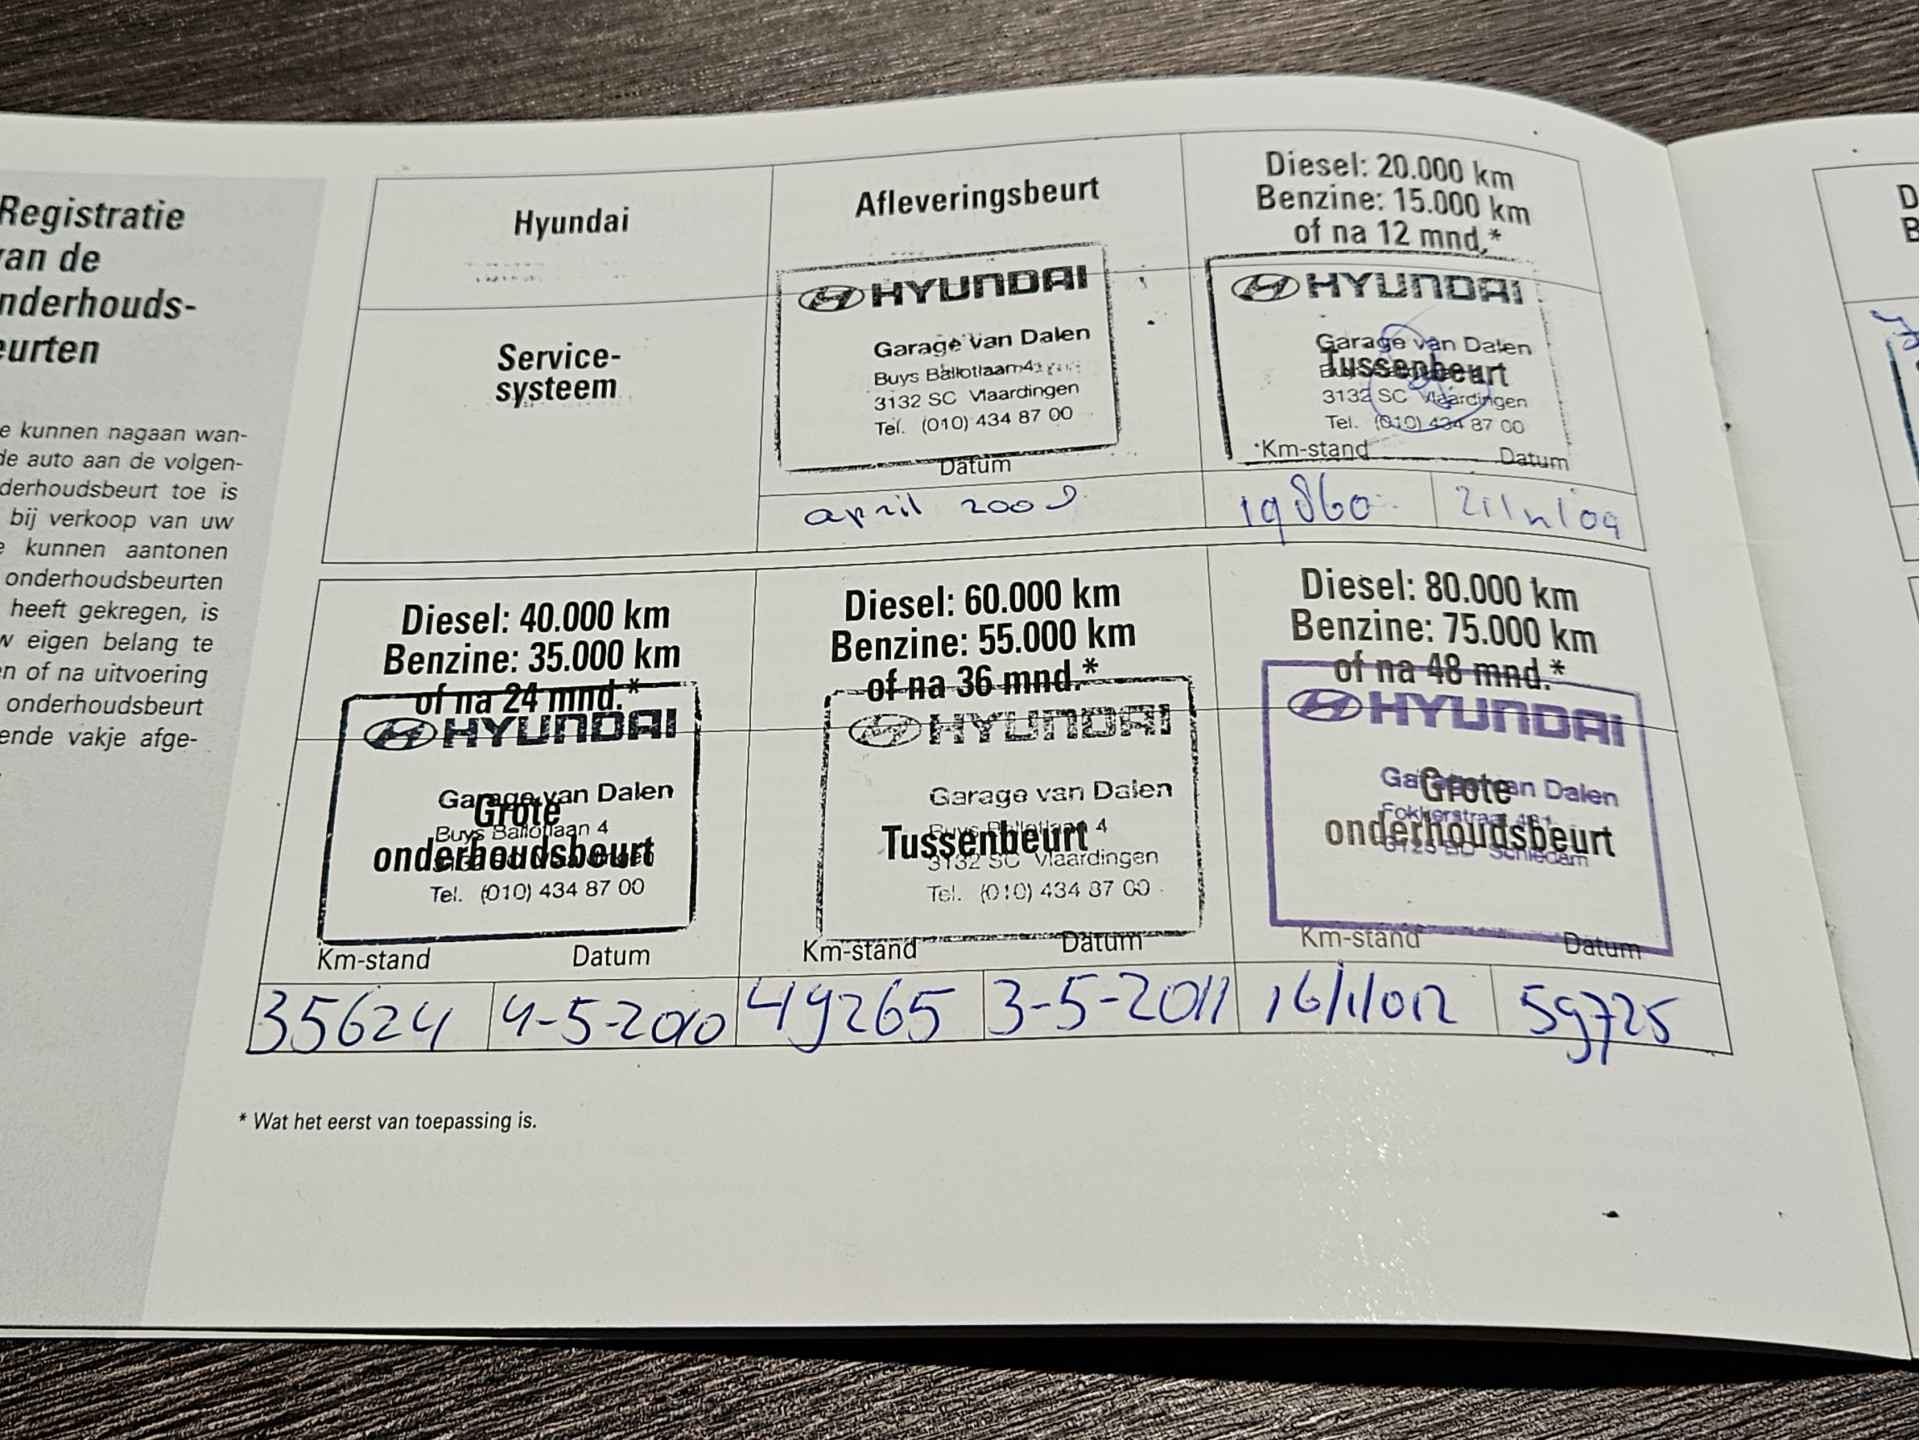 Registratie
van de
nderhouds-
eurten
e kunnen nagaan wan-
de auto aan de volgen-
derhoudsbeurt toe is
bij verkoop van uw
e kunnen aantonen
onderhoudsbeurten
heeft gekregen, is
w eigen belang te
en of na uitvoering
onderhoudsbeurt
ende vakje afge-
Hyundai
Service-
systeem
Afleveringsbeurt
HYUNDAI
Garage van Dalen
Buys Ballotlaan 4
3132 SC Vlaardingen
Tel. (010) 434 87 00
Datum
april 2009
Diesel: 20.000 km
Benzine: 15.000 km
of na 12 mnd.*
HYUNDAI
Garage van Dalen
Tussenbeurt
3132 SC Vlaardingen
Tel. (010) 434 87 00
Km-stand Datum
19860
Diesel: 40.000 km
Benzine: 35.000 km
of na 24 mnd.*
HYUNDAI
Garage van Dalen
Grote
Buys Ballotlaan 4
onderhoudsbeurt
Tel. (010) 434 87 00
Km-stand Datum
35624 4-5-2010
Diesel: 60.000 km
Benzine: 55.000 km
of na 36 mnd.*
HYUNDAI
Garage van Dalen
Buys Ballotlaan 4
Tussenbeurt
3132 SC Vlaardingen
Tel. (010) 434 87 00
Km-stand Datum
49265 3-5-2011
Diesel: 80.000 km
Benzine: 75.000 km
of na 48 mnd.*
HYUNDAI
Garage van Dalen
Grote
Fokkerstraat
onderhoudsbeurt
Schiedam
Km-stand Datum
59725
* Wat het eerst van toepassing is.
D
B